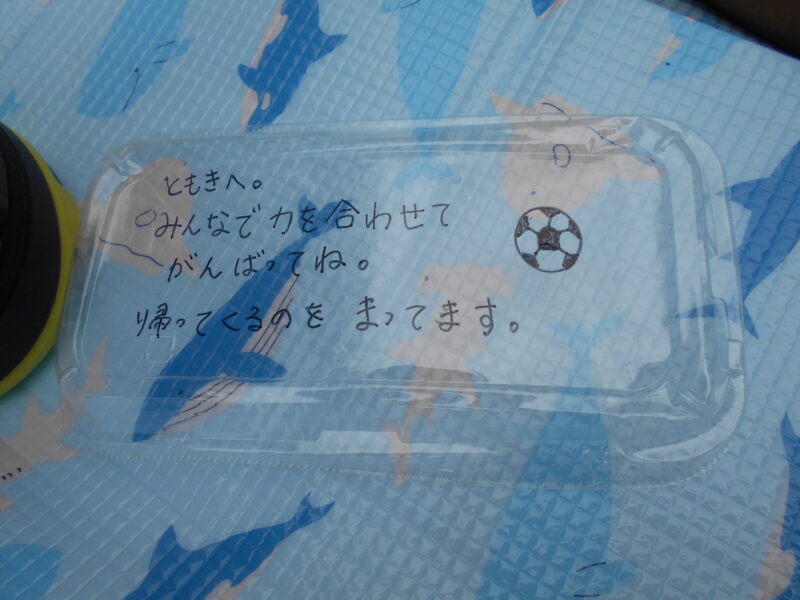 ともきへ。
みんなで力を合わせて
がんばってね。
帰ってくるのを まってます。